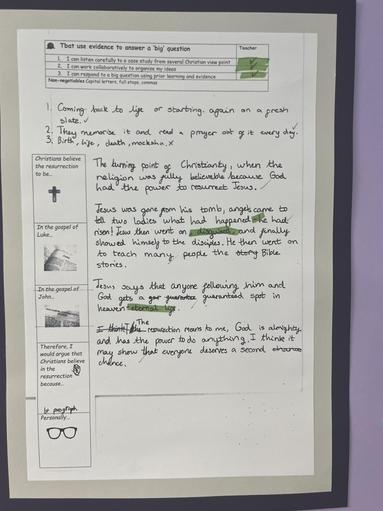 Tbat use evidence to answer a 'big' question
Teacher
1. I can listen carefully to a case study from several Christian view point
2. I can work collaboratively to organise my ideas
3. I can respond to a big question using prior learning and evidence
Non-negotiables Capital letters, full stops, commas
1. Coming back to life or starting again on a fresh
slate. ✓
2. They memorise it and read a prayer out of it every day.
3. Birth, life, death, mockshia. x
Christians believe
the resurrection
to be...
The turning point of Christianity, when the
religion was fully believable because God
had the power to resurrect Jesus.
In the gospel of
Luke...
Jesus was gone from his tomb, angels came to
tell two ladies what had happened - he had
risen! Jesus then went on disguised and finally
showed himself to the disciples. He then went on
to teach many people the story Bible
stories.
In the gospel of
John..
Jesus says that anyone following him and
God gets a guaranteed spot in
heaven - eternal life.
Therefore, I
would argue that
Christians believe
in the
resurrection
because..
I think the The resurrection means to me, God is almighty
and has the power to do anything. I think it
may show that everyone deserves a second
chance.
Personally...